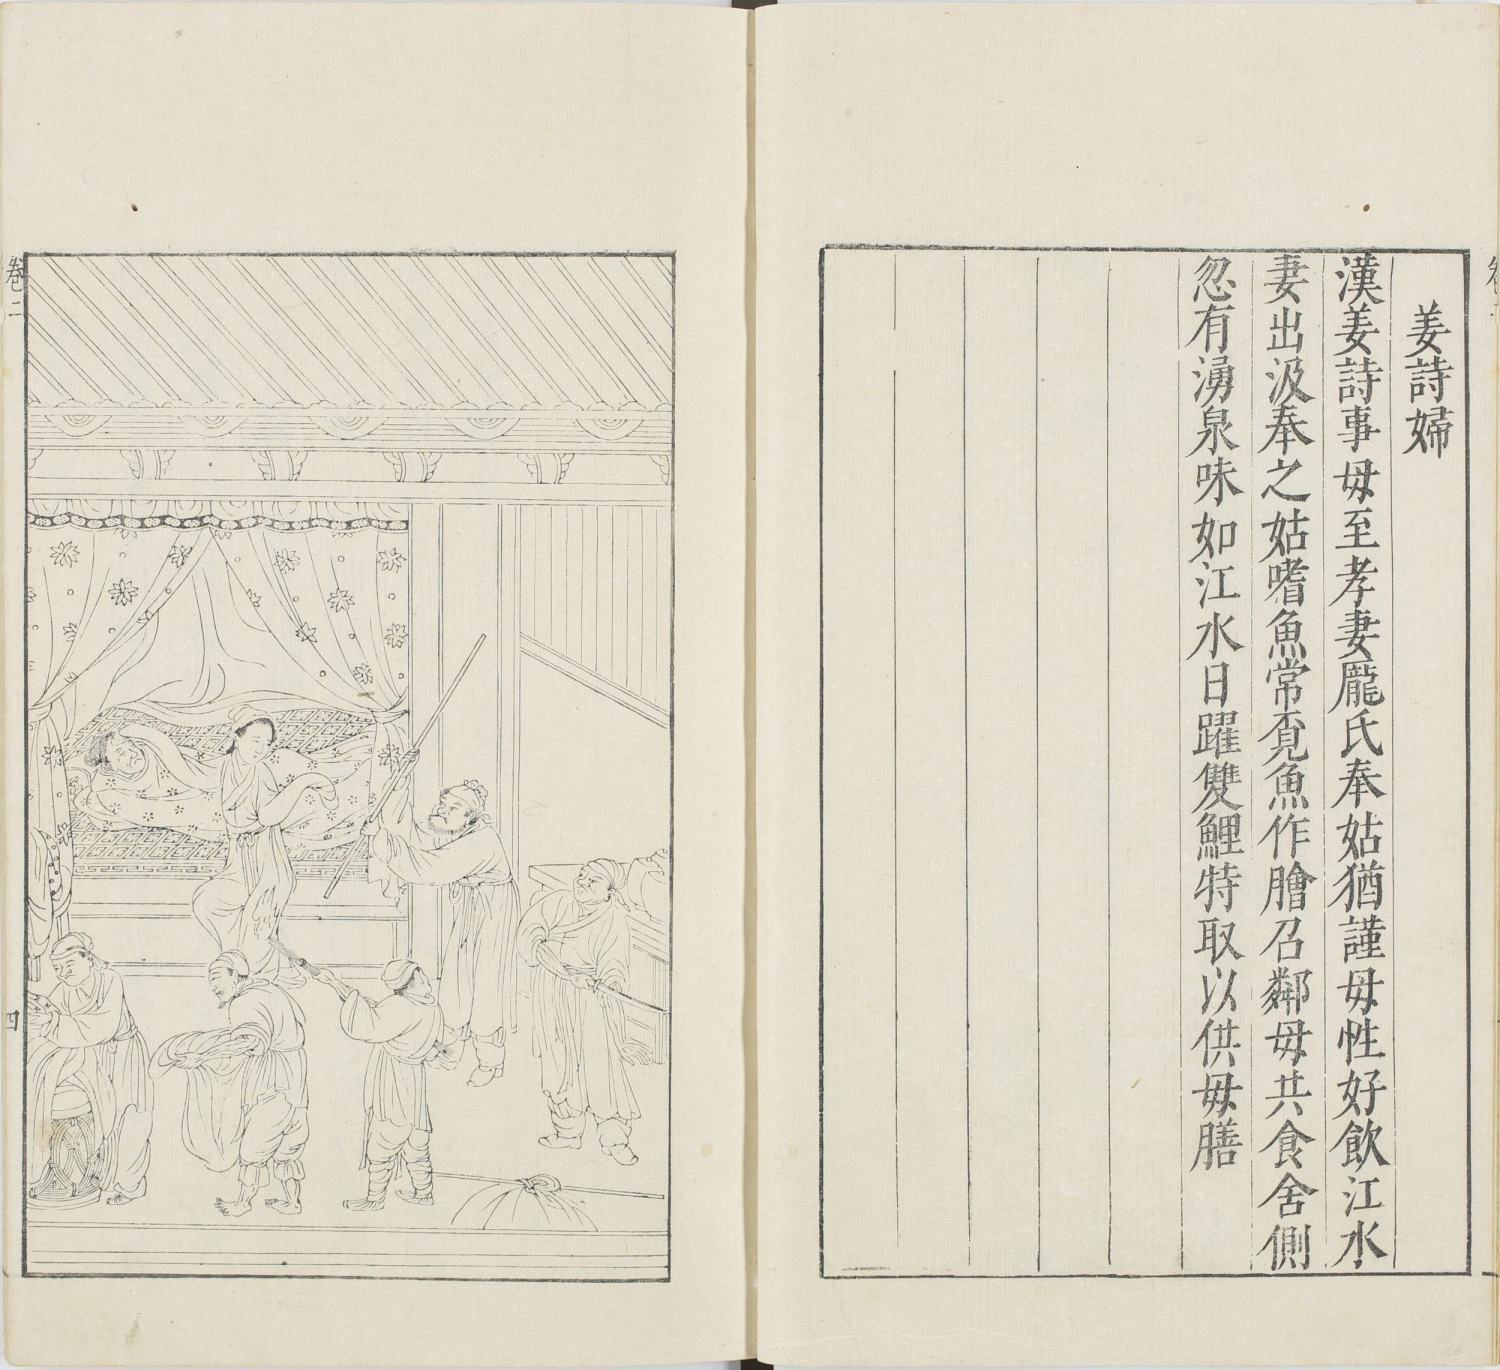 姜詩婦
漢姜詩事母至孝妻龐氏奉姑猶謹母性好飲江水
妻出汲奉之姑嗜魚常覓魚作膾召鄰母共食舍側
忽有湧泉味如江水日躍雙鯉特取以供母膳
卷二
四